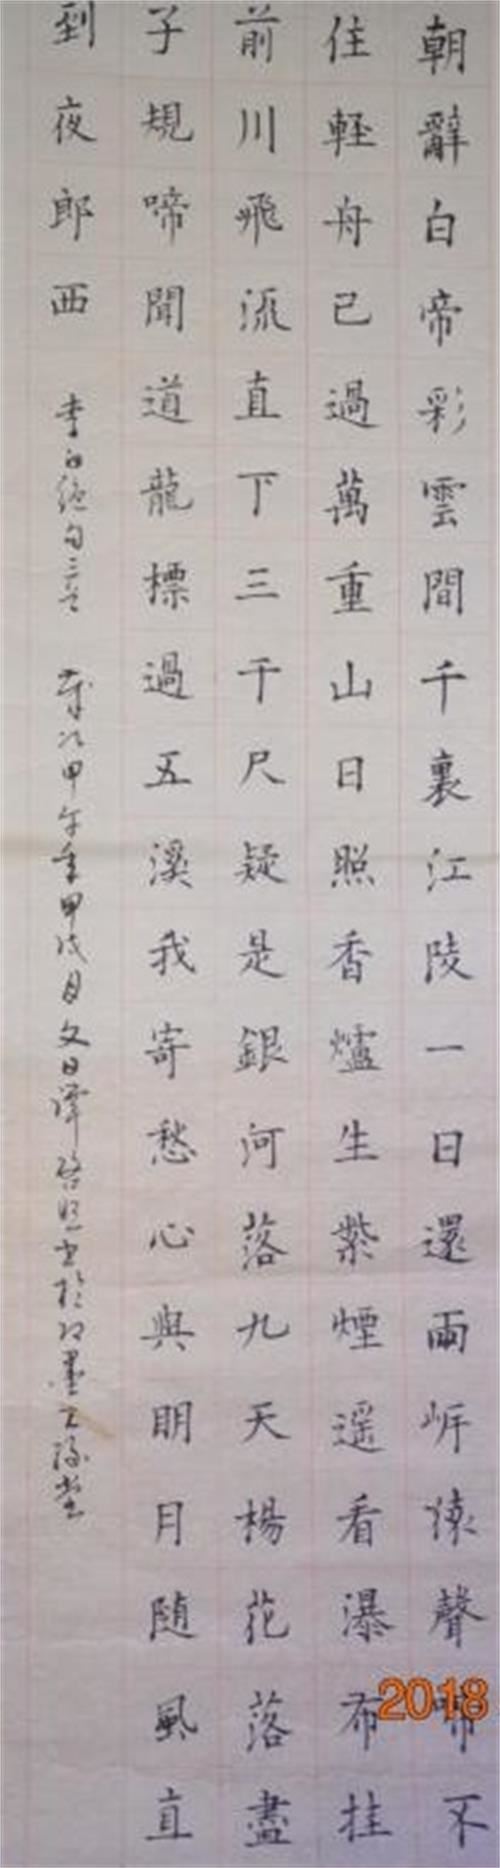 朝辭白帝彩雲間千裏江陵一日還兩岍猿聲啼不
住軽舟已過萬重山日照香爐生紫煙遥看瀑布挂
前川飛流直下三千尺疑是銀河落九天楊花落盡
子規啼聞道龍標過五溪我寄愁心與明月随風直
到夜郎西
李白絶句三首 歲次甲午年甲戌月文日譚啓照書於
2018